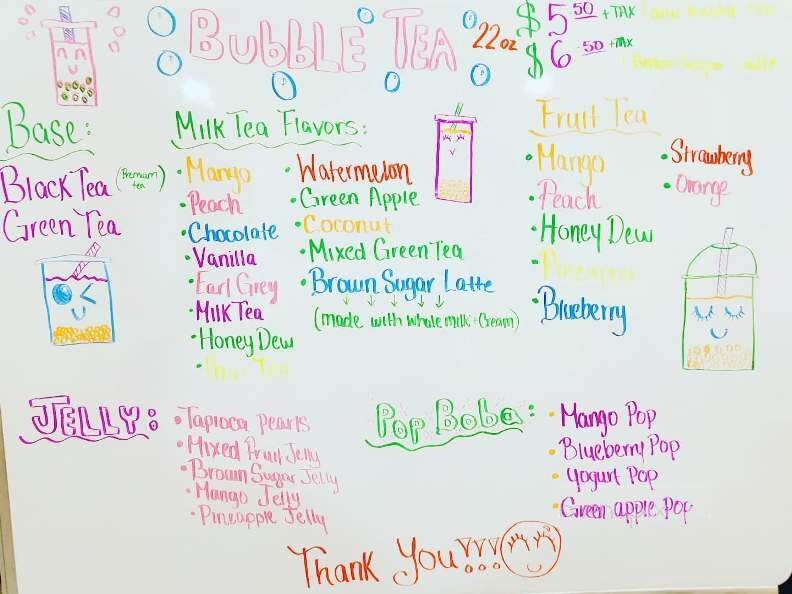 Bubble Tea 22oz
$5.50 + TAX
$6.50 + TAX
Base:
Black Tea (Premium tea)
Green Tea
Milk Tea Flavors:
• Mango
• Peach
• Chocolate
• Vanilla
• Earl Grey
• Milk Tea
• Honey Dew
• Watermelon
• Green Apple
• Coconut
• Mixed Green Tea
• Brown Sugar Latte
(made with whole milk + Cream)
Fruit Tea
• Mango
• Peach
• Honey Dew
• Pineapple
• Blueberry
• Strawberry
• Orange
JELLY:
• Tapioca Pearls
• Mixed Fruit Jelly
• Brown Sugar Jelly
• Mango Jelly
• Pineapple Jelly
Pop Boba:
• Mango Pop
• Blueberry Pop
• Yogurt Pop
• Green apple Pop
Thank You!!!